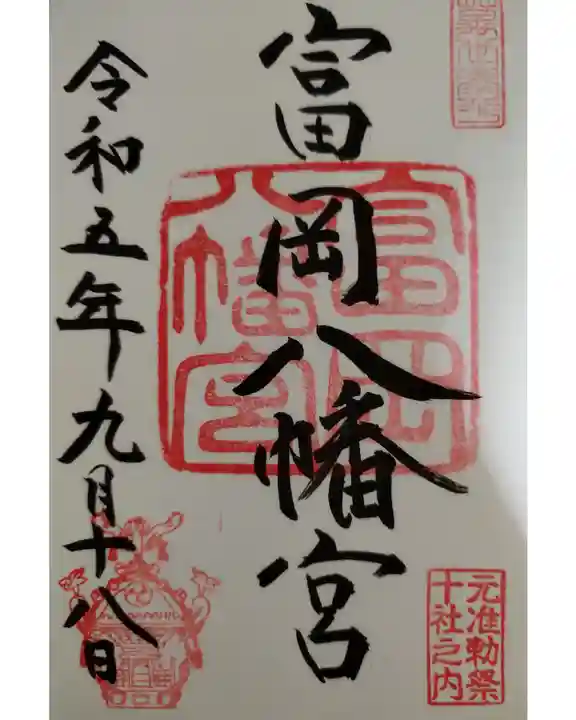 富岡八幡宮
元准勅祭
十社之内
富岡
八幡宮
令和五年九月十八日